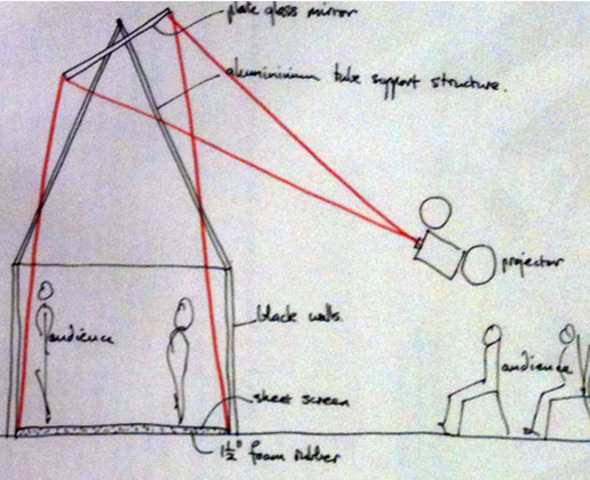 plate glass mirror
aluminium tube support structure.
projector
black walls.
audience
audience
sheet screen
1½" foam rubber